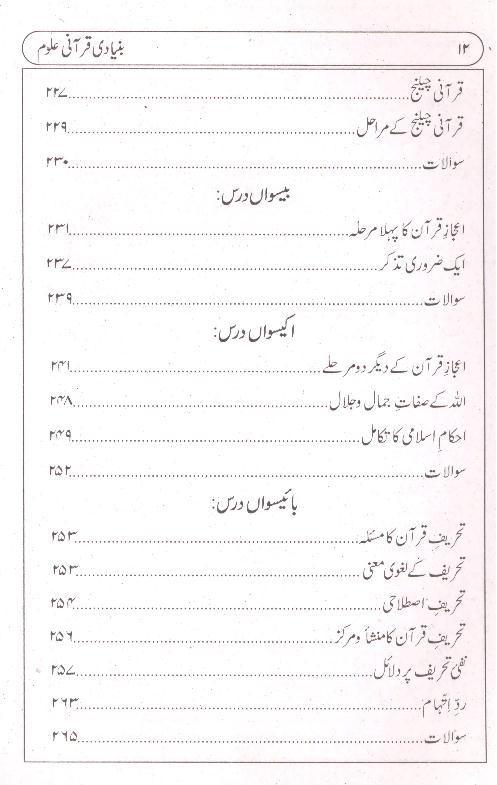 ۱۲ بنیادی قرآنی علوم
قرآنی چیلنج ۲۲۷
قرآنی چیلنج کے مراحل ۲۲۹
سوالات ۲۳۰
بیسواں درس:
اعجازِ قرآن کا پہلا مرحلہ ۲۳۱
ایک ضروری تذکر ۲۳۷
سوالات ۲۳۹
اکیسواں درس:
اعجازِ قرآن کے دیگر دو مرحلے ۲۴۱
اللہ کے صفاتِ جمال و جلال ۲۴۸
احکامِ اسلامی کا تکامل ۲۴۹
سوالات ۲۵۲
بائیسواں درس:
تحریفِ قرآن کا مسئلہ ۲۵۳
تحریف کے لغوی معنی ۲۵۳
تحریفِ اصطلاحی ۲۵۴
تحریفِ قرآن کا منشأ و مرکز ۲۵۶
نفیٔ تحریف پر دلائل ۲۵۷
ردِّ اتّہام ۲۶۳
سوالات ۲۶۵